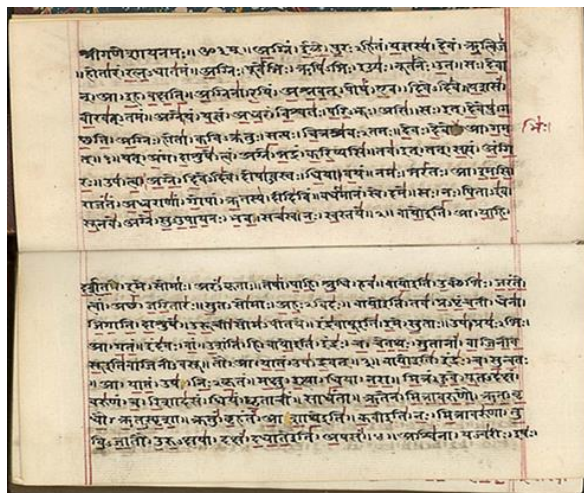 श्रीगणेशायनमः॥ॐ३म्॥अग्निं।ईळे।पुरःऽहितं।यज्ञस्य।देवं।ऋत्विजं
॥होतारं।रत्नऽधातमं॥अग्निः।पूर्वेभिः।ऋषिऽभिः।ईड्यः।नूतनैः।उत।सः।देवा
न्।आ।इह।वक्षति॥अग्निना।रयिं।अश्नवत्।पोषं।एव।दिवेऽदिवे।यशसं
वीरवत्ऽतमं॥अग्ने।यं।यज्ञं।अध्वरं।विश्वतः।परिऽभूः।असि।सः।इत्।देवेषु।ग
च्छति॥अग्निः।होता।कविऽक्रतुः।सत्यः।चित्रश्रवःऽतमः।देवः।देवे।आ।गम
भिः।
त्॥१॥यत्।अंग।दाशुषे।त्वं।अग्ने।भद्रं।करिष्यसि।तव।इत्।तत्।सत्यं।अंगि
रः॥उप।त्वा।अग्ने।दिवेऽदिवे।दोषाऽवस्तः।धिया।वयं।नमः।भरंतः।आ।इमसि
राजंतं।अध्वराणां।गोपां।ऋतस्य।दीदिविं।वर्धमानं।स्वे।दमे॥सः।नः।पिताऽइव
सूनवे।अग्ने।सुऽउपायनः।भव।सचस्व।नः।स्वस्तये॥२॥वायोइति।आ।याहि।
दर्शत।इमे।सोमाः।अरंऽकृताः।तेषां।पाहि।श्रुधि।हवं॥वायोइति।उक्थेभिः।जरंते
त्वां।अच्छ।जरितारः।सुतऽसोमाः।अहःऽविदः॥वायोइति।तव।प्रऽपृंचती।धेना
जिगाति।दाशुषे।उरूची।सोमऽपीतये॥इंद्रवायूइति।इमे।सुताः।उप।प्रयःऽभिः।
आ।गतं।इंदवः।वां।उशंति।हि॥वायोइति।इंद्रः।च।चेतथः।सुतानां।वाजिनीव
सूइतिवाजिनीवसू।तौ।आ।यातं।उप।द्रवत्॥३॥वायोइति।इंद्रः।च।सुन्वतः
॥आ।यातं।उप।निःऽकृतं।मक्षु।इत्था।धिया।नरा॥मित्रं।हुवे।पूतऽदक्षं
वरुणं।च।रिशादसं।धियं।घृताचीं।साधंता॥ऋतेन।मित्रावरुणौ।ऋतऽवृ
धौ।ऋतऽस्पृशा।क्रतुं।बृहंतं।आशाथेइति॥कवीइति।नः।मित्रावरुणा।तु
विऽजातौ।उरुऽक्षया।दक्षं।दधातेइति।अपसं॥४॥अश्विना।यज्वरीः।इषः।